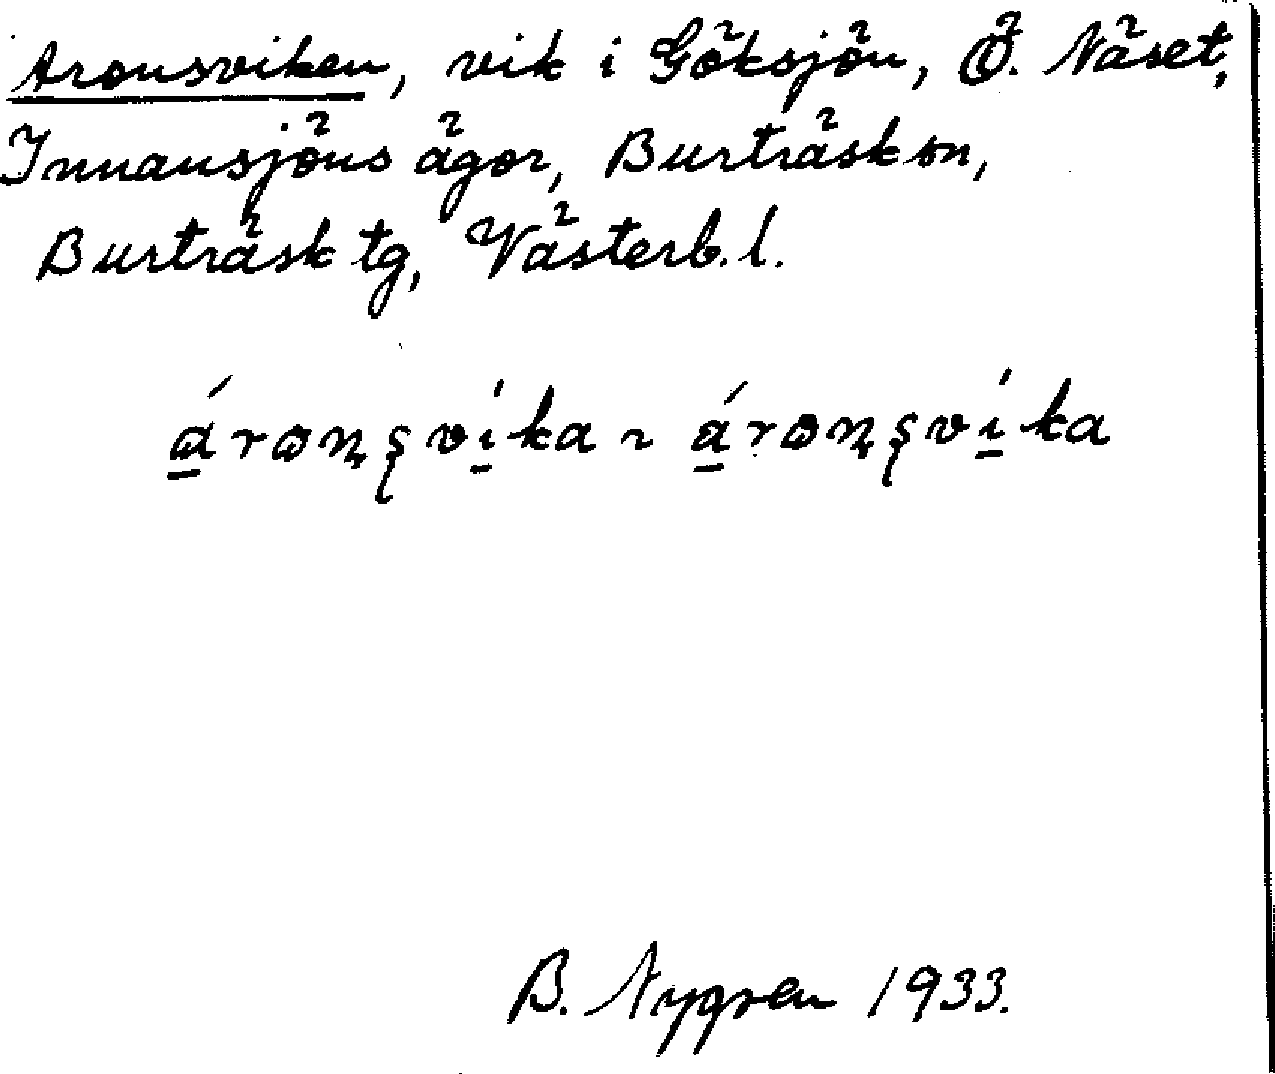 Aronsviken, vik i Göksjön, Ö. Näset,
Innansjöns ägor, Burträsk sn,
Burträsk tg, Västerb. l.
á̱ronʂví̱ka ~ á̱ronʂví̱ka
B. Nygren 1933.